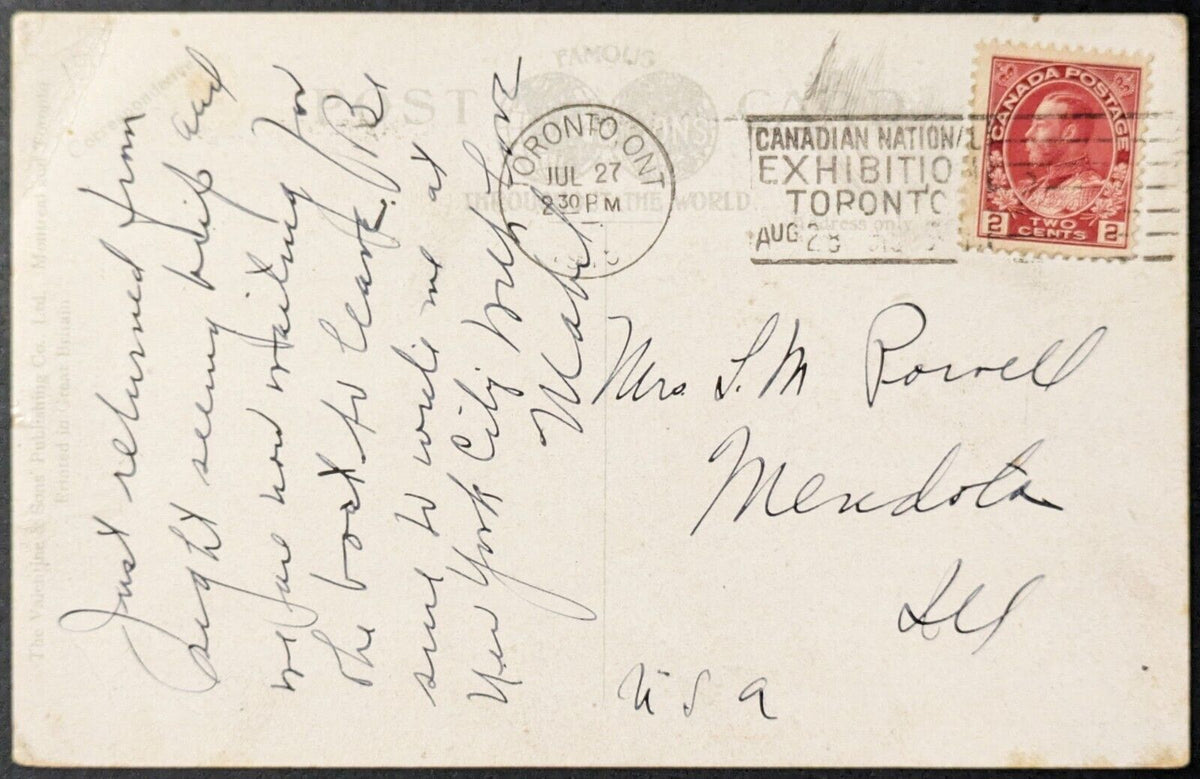 FAMOUS
POST CARD
THROUGHOUT THE WORLD.
TORONTO, ONT
JUL 27
2 30 PM
CANADIAN NATION
EXHIBITIO
TORONTO
AUG 28
CANADA POSTAGE
2 TWO CENTS 2
Address only
The Valentine & Sons Publishing Co. Ltd. Montreal and Toronto
Printed in Great Britain
Just returned from
sight seeing trip and
we are now waiting for
the boat to leave. Be
sure to write me at
New York City With Love
Mabel
Mrs. L. M Powell
Mendota
Ill
U S A